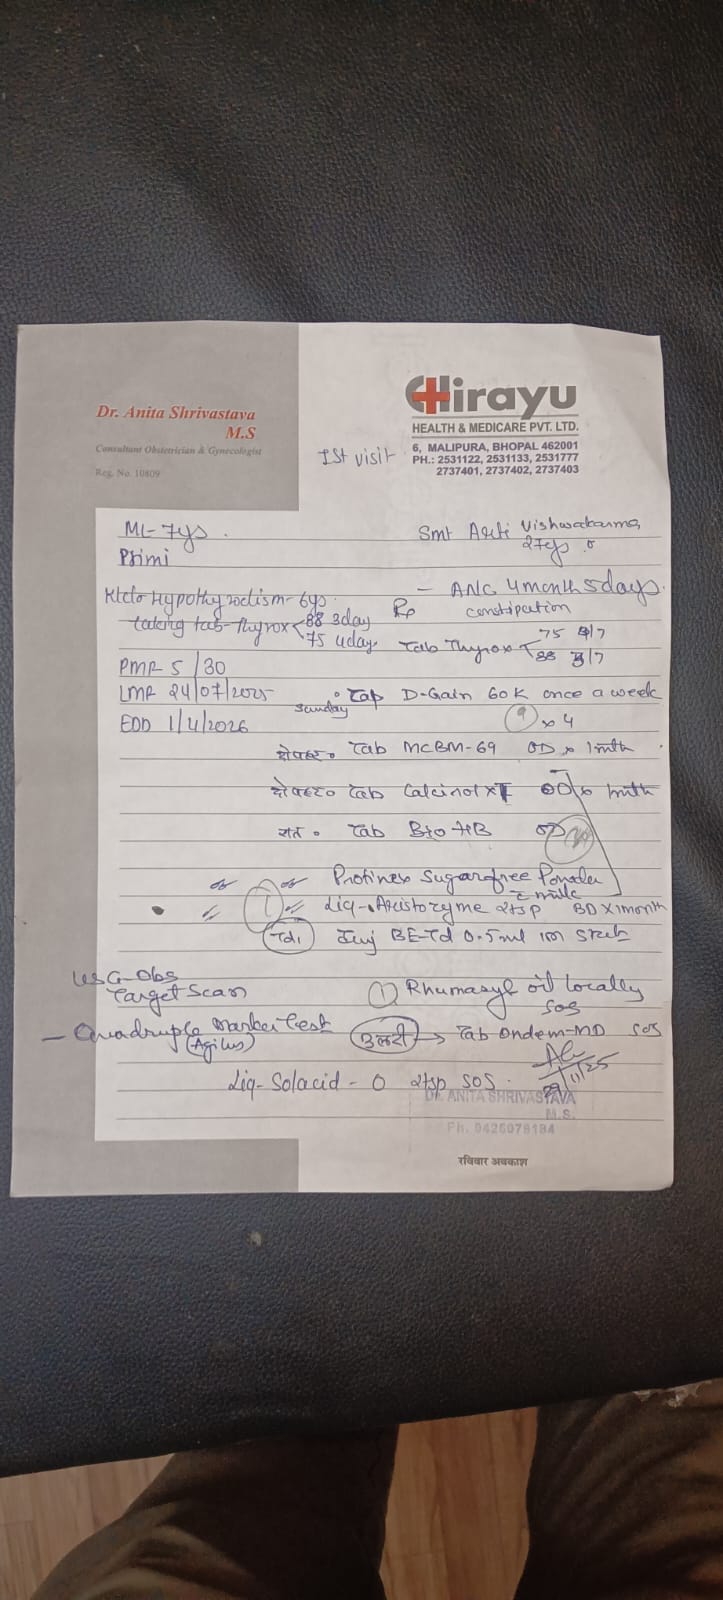 Dr. Anita Shrivastava
M.S
Consultant Obstetrician & Gynecologist
Reg. No. 10809
Chirayu
HEALTH & MEDICARE PVT. LTD.
6, MALIPURA, BHOPAL 462001
PH.: 2531122, 2531133, 2531777
2737401, 2737402, 2737403
Ist visit
ML- 7ys.
Smt Arti Vishwakarma
27ys
Primi
- ANC 4 month 5 days.
constipation
K/c/o Hypothyrodism - 6ys.
taking tab- Thyrox 88 3day
75 4day
Rx
Tab Thyrox 75 4/7
88 3/7
PMP 5/30
LMP 24/07/2025
EDD 1/4/2026
Sunday Tab D-Gain 60K once a week
x 4
Tab MCBM-69 OD x 1mth
Tab Calcinol XT OD x 1mth
रात Tab Bio HB OD
Protinex Sugarfree Powder
c milk
Liq- Aristozyme 2tsp BD x 1month
Td1 Inj BE-Td 0.5ml im stat
USG-Obs
Target Scan
Rhumasyl oil locally
SOS
- Quadruple Marker test
(Agilus)
उल्टी → Tab Ondem-MD SOS
Liq- Solacid - O 2tsp SOS.
11/25
DR. ANITA SHRIVASTAVA
M.S.
Ph. 9426078184
रविवार अवकाश